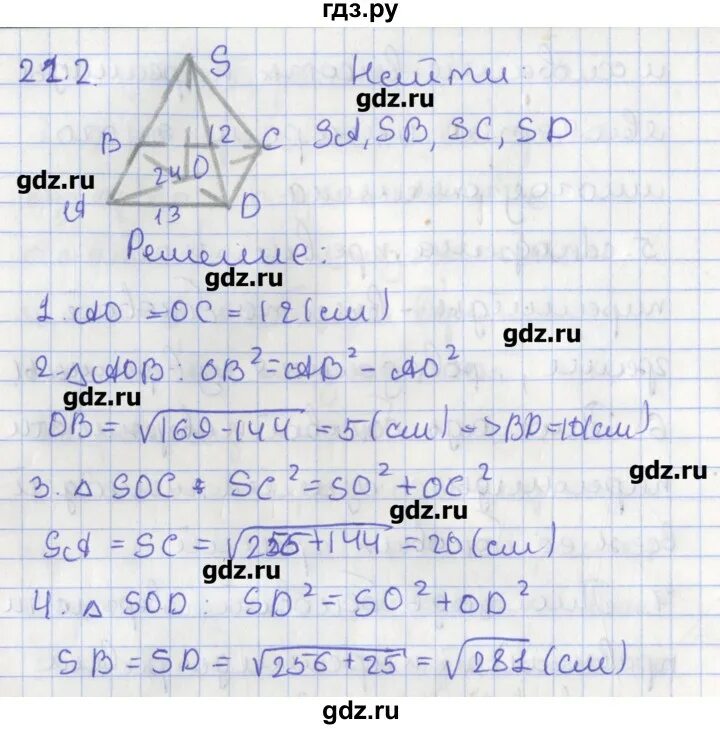 гдз.ру
21.2
S
Найти
gdz.ru
B
12
C
SA, SB, SC, SD
24
O
gdz.ru
A
13
D
Решение:
gdz.ru
1. AO = OC = 12 (см)
gdz.ru
2. △AOB: OB² = AB² - AO²
gdz.ru
OB = √169-144 = 5 (см) => BD=10(см)
gdz.ru
3. △ SOC: SC² = SO² + OC²
gdz.ru
SA = SC = √256+144 = 20 (см)
gdz.ru
4. △ SOD: SD² = SO² + OD²
SB = SD = √256+25 = √281 (см)
gdz.ru